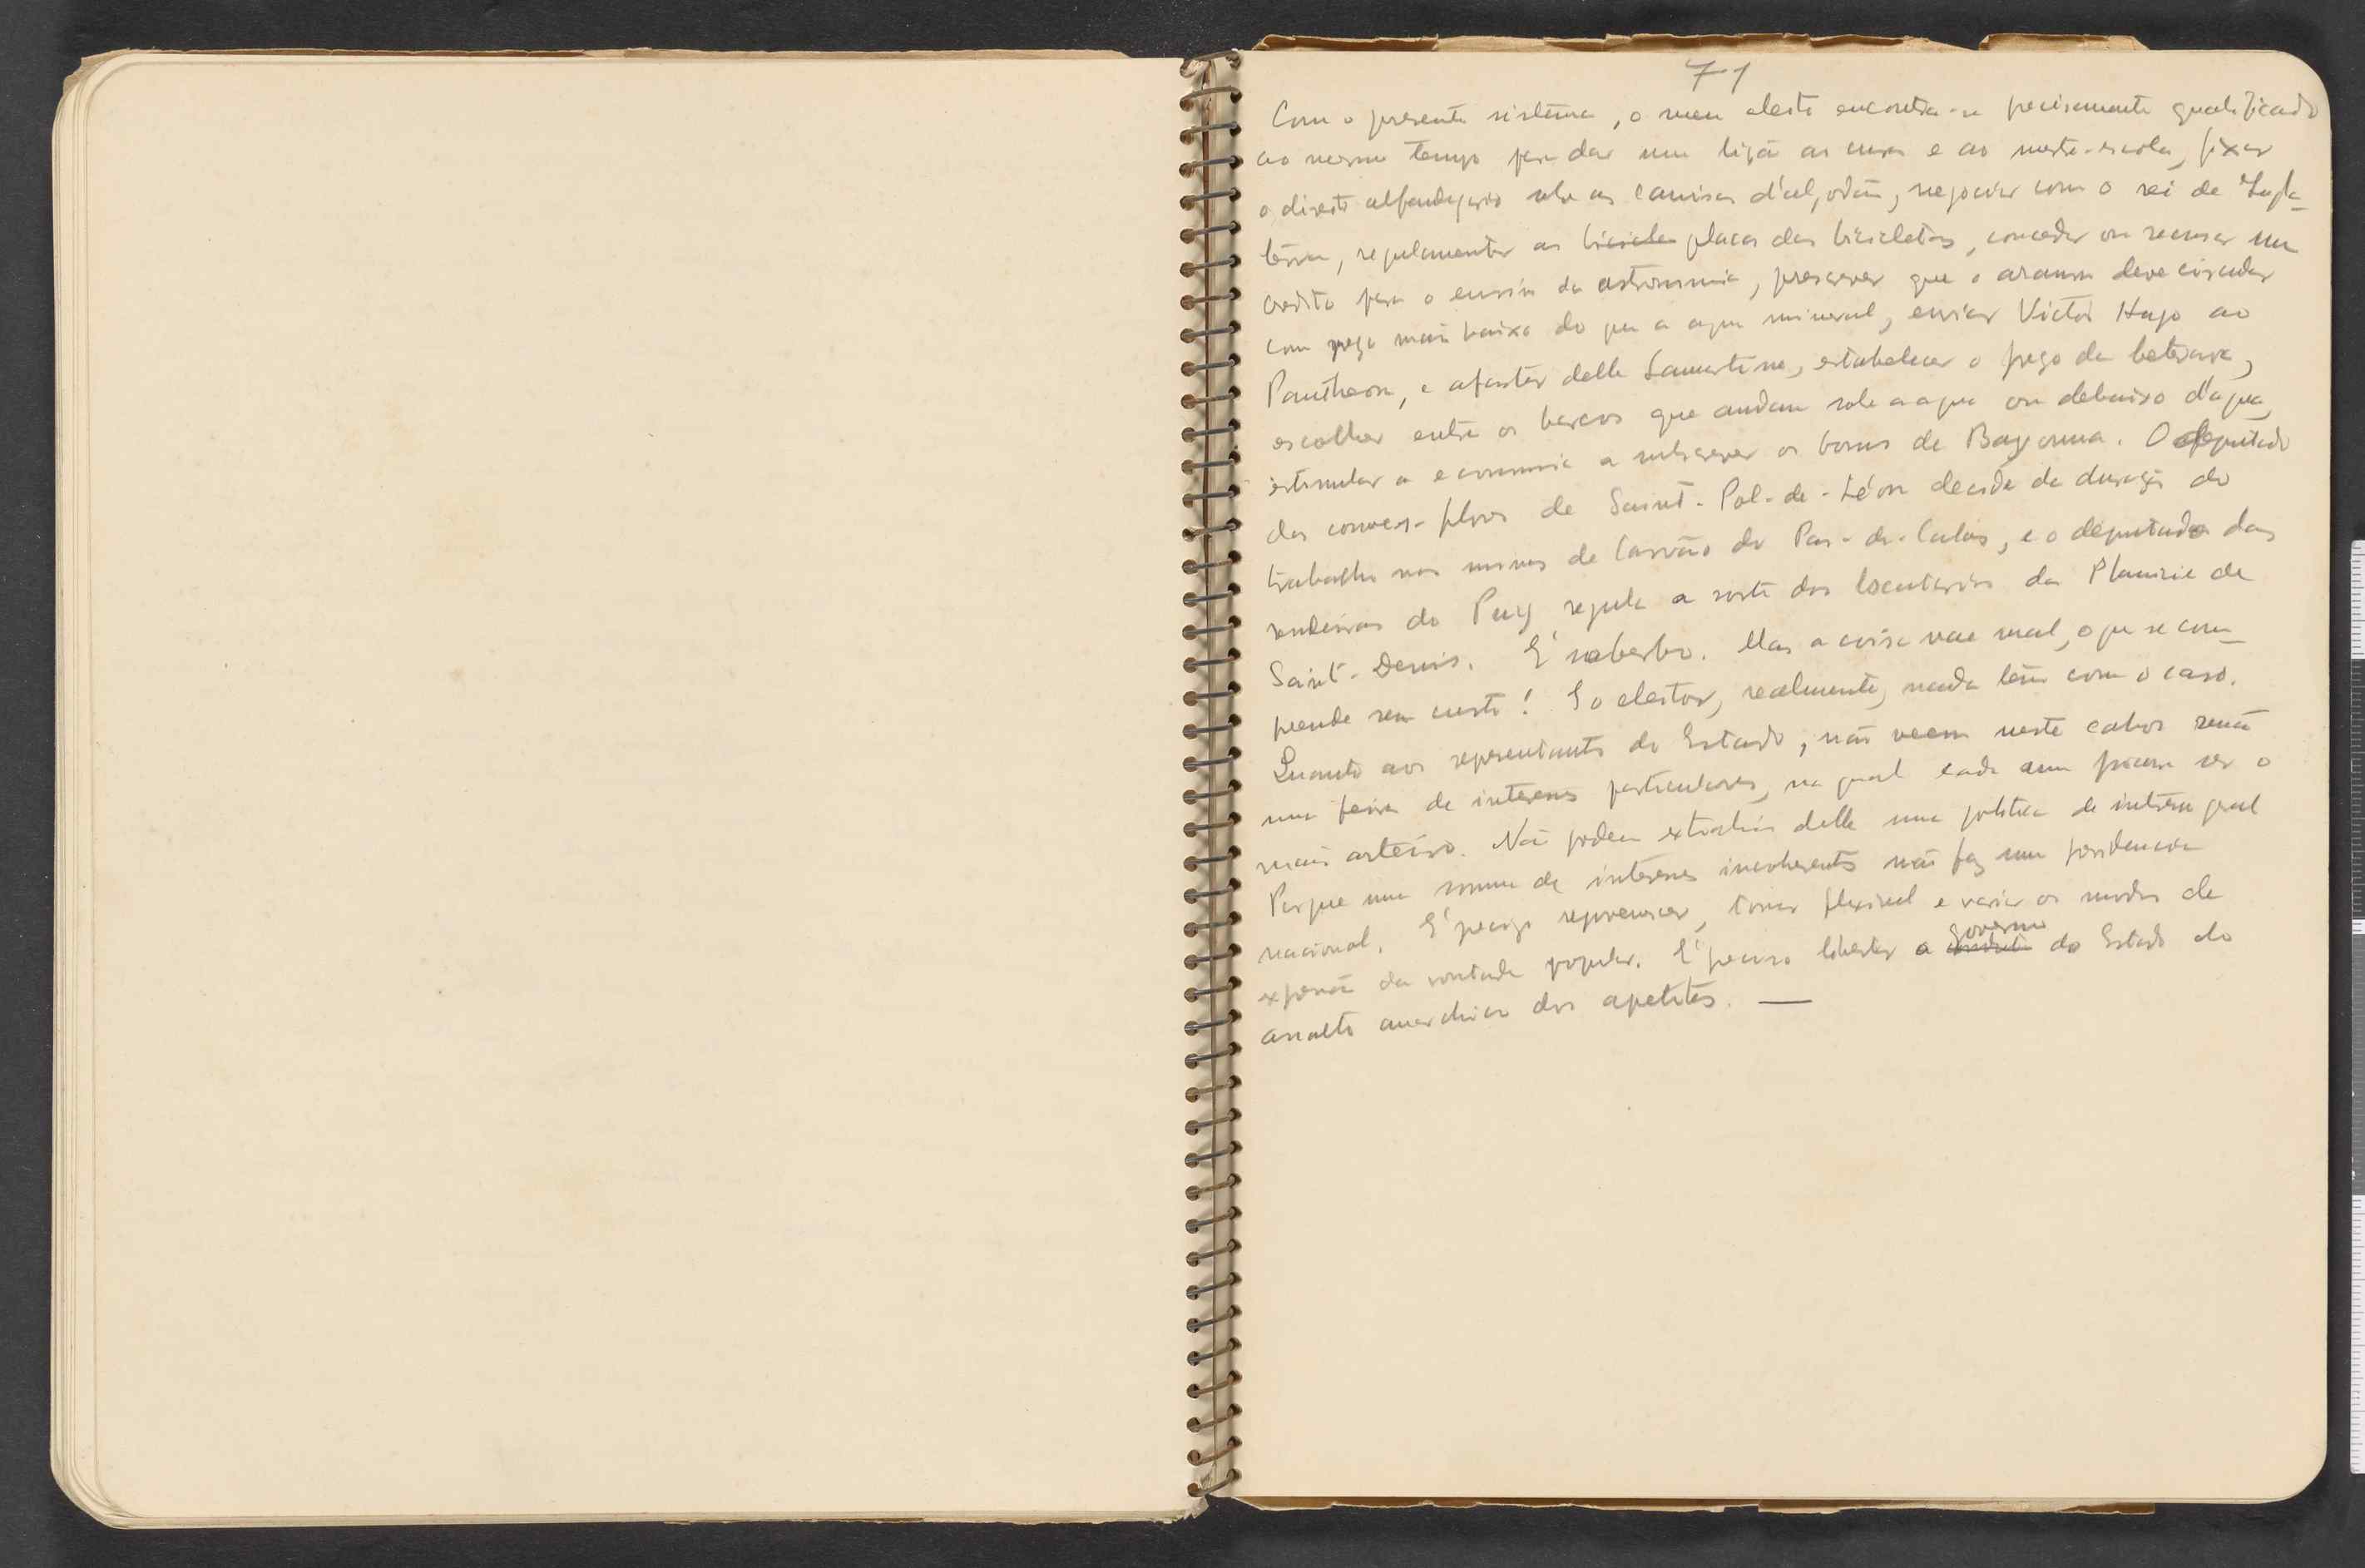 71
Com o presente sistema, o meu eleito encontra-se precisamente qualificado
ao mesmo tempo para dar uma lição ao cura e ao mestre-escola, fixar
o direito alfandegario sobre as camisas d'algodão, negociar com o rei de Ingla-
terra, regulamentar as bicicletas placas das bicicletas, conceder ou recusar um
credito para o ensino da astronomia, prescrever que o arame deve circular
com preço mais baixo do que a agua mineral, enviar Victor Hugo ao
Pantheon, e afastar delle Lamartine, estabelecer o preço da beterava,
escolher entre os barcos que andam sobre a agua ou debaixo d'agua,
estimular a economia a subscrever os bonus de Bayonna. O deputado
das couves-flores de Saint-Pol-de-Léon decide da duração do
trabalho nas minas de carvão do Pas-de-Calais, e o deputado das
rendeiras do Puy regula a sorte dos locatarios da Planicie de
Saint-Denis. É soberbo. Mas a coisa vae mal, o que se com-
preende sem custo! E o eleitor, realmente, nada tem com o caso.
Quanto aos representantes do Estado, não veem neste cahos senão
uma feira de interesses particulares, na qual cada um procura ser o
mais arteiro. Não podem extrahir delle uma politica de interesse geral
Porque uma somma de interesses incoherentes não faz uma providencia
nacional. É preciso rejuvenescer, tornar flexivel e variar os modos de
expressão da vontade popular. É preciso libertar o governo do Estado do
assalto anarchico dos apetites. —